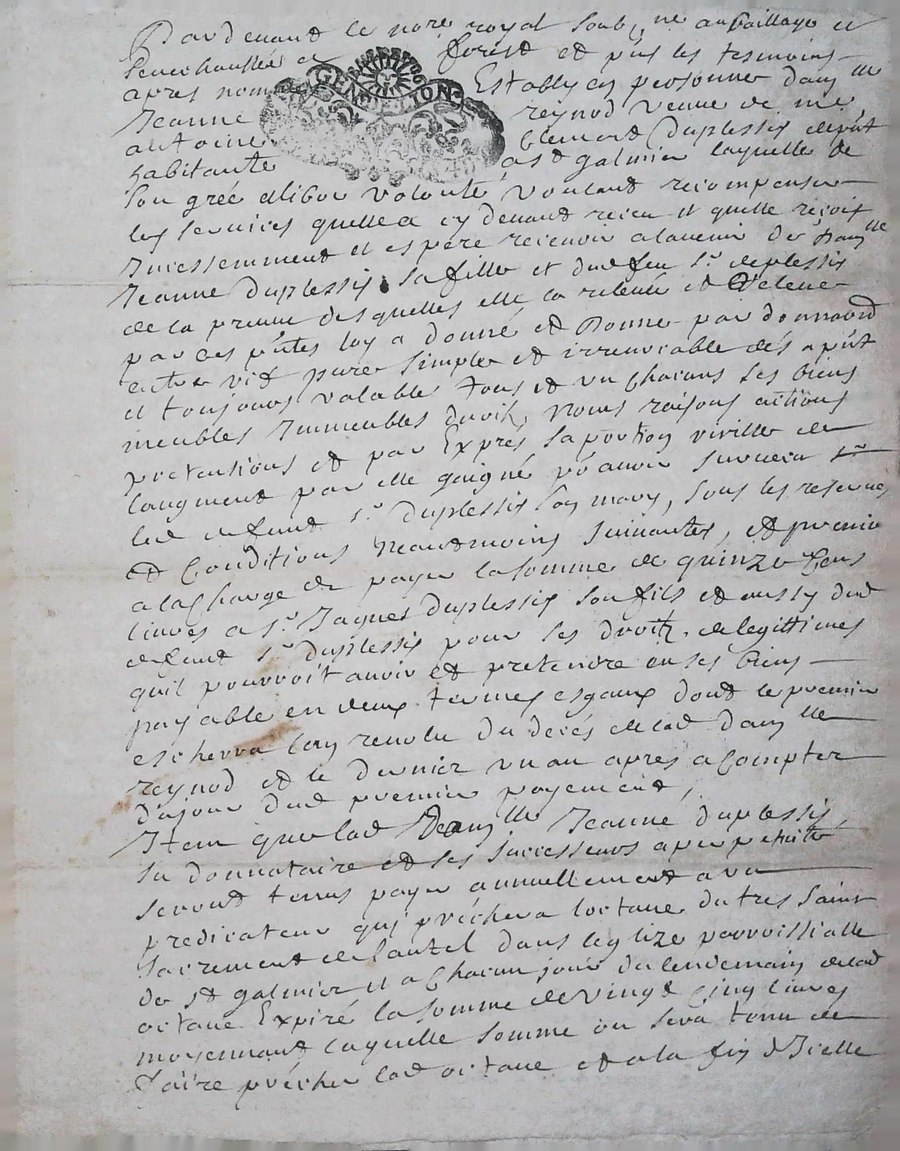 Pardevant le nore royal soubne au bailliage et
Seneschaussée et forest et pñs les tesmoins
GEN DE LION
apres nom Establye en personne damlle
Jeanne reynod veuve de me
antoine clement duplessis de put
habitante a st galmier laquelle de
son gréé et libre volonté voulant recompenser
les services quelle a cy devant receu et quelle reçoit
Incessemment et espere recevoir a lavenir de damlle
Jeanne duplessis sa fille et dud feu sr. duplessis
de la preuve desquelles elle la relevée et Releve
par ces pñtes luy a donné et donne par donnaõn
entre vifs pure simple et irrevocable dés apñt
et toujours valable tous et un chacuns ses biens
meubles Immeubles droits, noms raisons actions
pretensions et par Exprés sa portion virille de
laugment par elle gaigné pr avoir survecu
led deffunt sr. duplessis son mary, sous les reserves
et Conditions neantmoins suivantes, et premier
a la Charge de payer la somme de quinze Cens
livres a sr. Jaques duplessis son fils et aussy dud
deffunt sr. duplessis pour ses droitz de legittimes
quil pourroit avoir et pretendre en ses biens
payable en deux termes esgaux dont le premier
eschevra lan revolu du decés de lad damlle
reynod et le dernier un an apres a Compter
du jour dud premier payement,
Item que lad Damlle Jeanne duplessis,
sa donnataire et ses successeurs a perpetuitté
seront tenus payer annuellement a un
predicateur qui préchera loctave du tres saint
sacrement de lautel dans leglize parroissialle
de st galmier et a Chacun jour du lendemain de lad
octave Expiré la somme de vingt cinq livres
moyennant laquelle somme on sera tenu de
faire précher lad octave et a la fin dJcelle